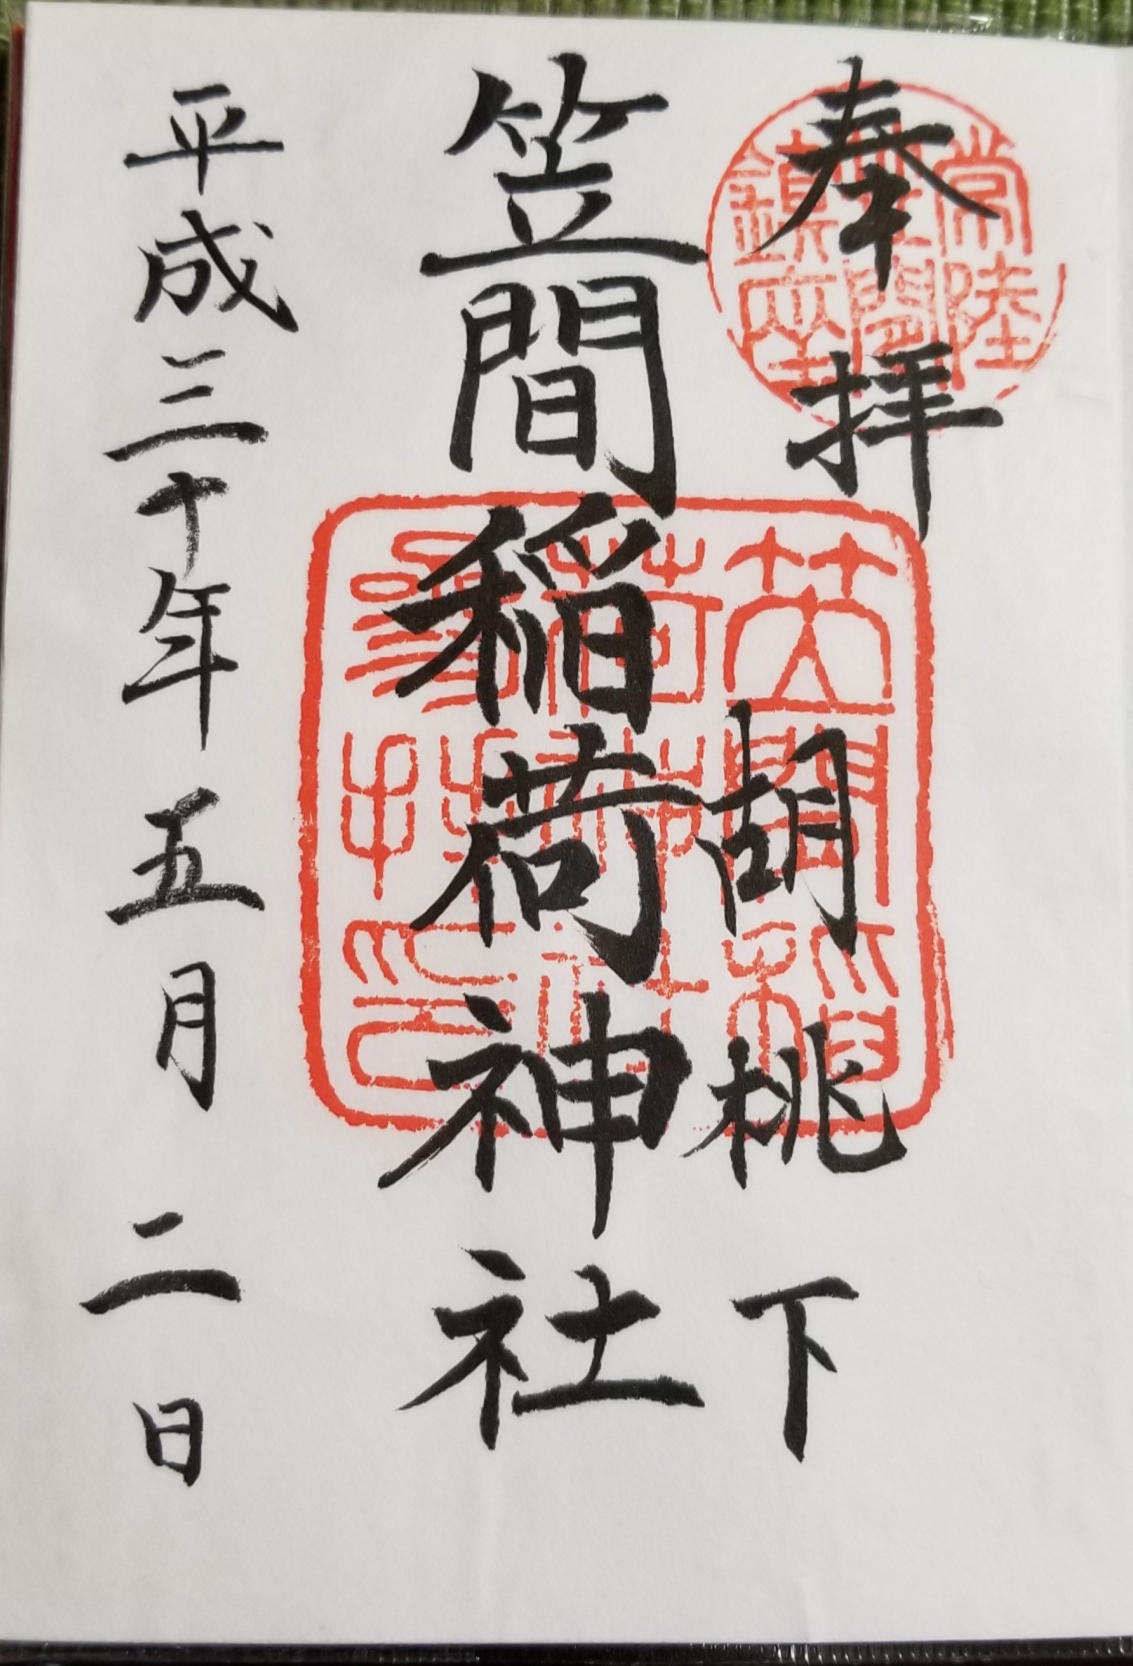 奉拝
常陸笠間鎮座
胡桃下
笠間稲荷神社
平成三十年五月二日